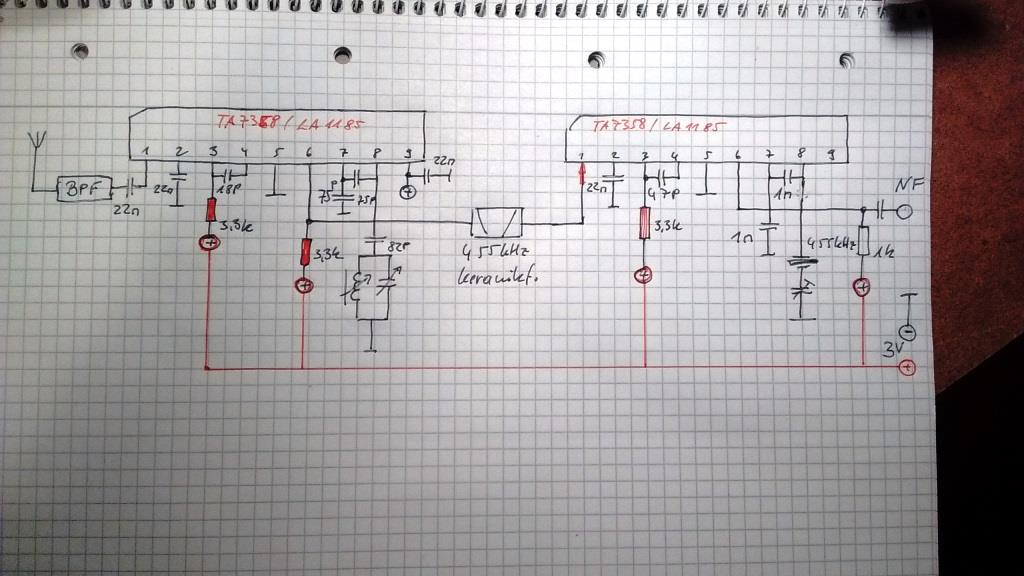 TA7358/LA1185
1 2 3 4 5 6 7 8 9
BPF
22n
22n
18P
3,3k
3,3k
75P
25P
22n
+
+
+
82P
455kHz
keramikf.
TA7358/LA1185
1 2 3 4 5 6 7 8 9
22n
47P
3,3k
+
1n
1n
455kHz
NF
1k
+
-
3V
+